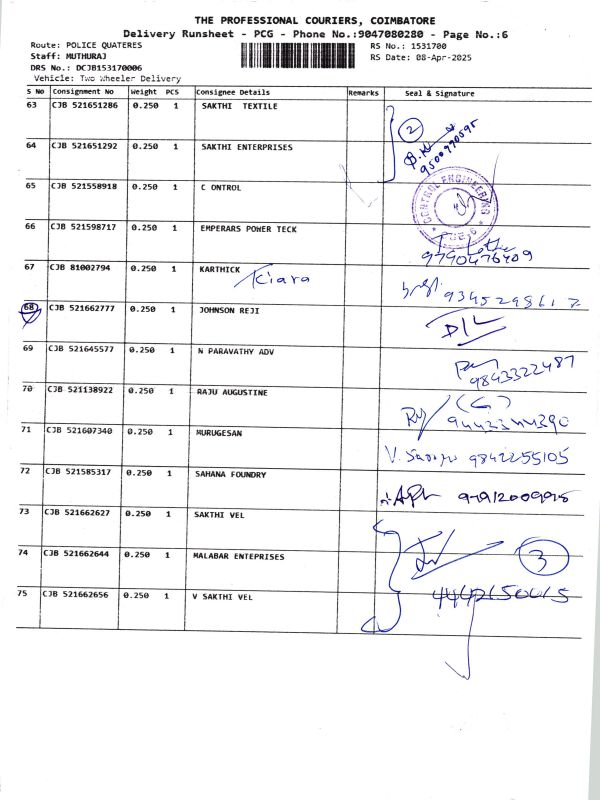 THE PROFESSIONAL COURIERS, COIMBATORE
Delivery Runsheet - PCG - Phone No.:9047080280 - Page No.:6
Route: POLICE QUATERES RS No.: 1531700
Staff: MUTHURAJ RS Date: 08-Apr-2025
DRS No.: DCJB153170006
Vehicle: Two Wheeler Delivery
S No Consignment No Weight PCS Consignee Details Remarks Seal & Signature
63 CJB 521651286 0.250 1 SAKTHI TEXTILE
2
64 CJB 521651292 0.250 1 SAKTHI ENTERPRISES
9500990595
65 CJB 521558918 0.250 1 C ONTROL
CONTROL ENGINEERING
66 CJB 521598717 0.250 1 EMPERARS POWER TECK
9790476409
67 CJB 81002794 0.250 1 KARTHICK Kiara
68 CJB 521662777 0.250 1 JOHNSON REJI
69 CJB 521645577 0.250 1 N PARAVATHY ADV
9843322487
70 CJB 521138922 0.250 1 RAJU AUGUSTINE
9443344390
71 CJB 521607340 0.250 1 MURUGESAN
9842255105
72 CJB 521585317 0.250 1 SAHANA FOUNDRY
73 CJB 521662627 0.250 1 SAKTHI VEL
74 CJB 521662644 0.250 1 MALABAR ENTEPRISES
3
75 CJB 521662656 0.250 1 V SAKTHI VEL